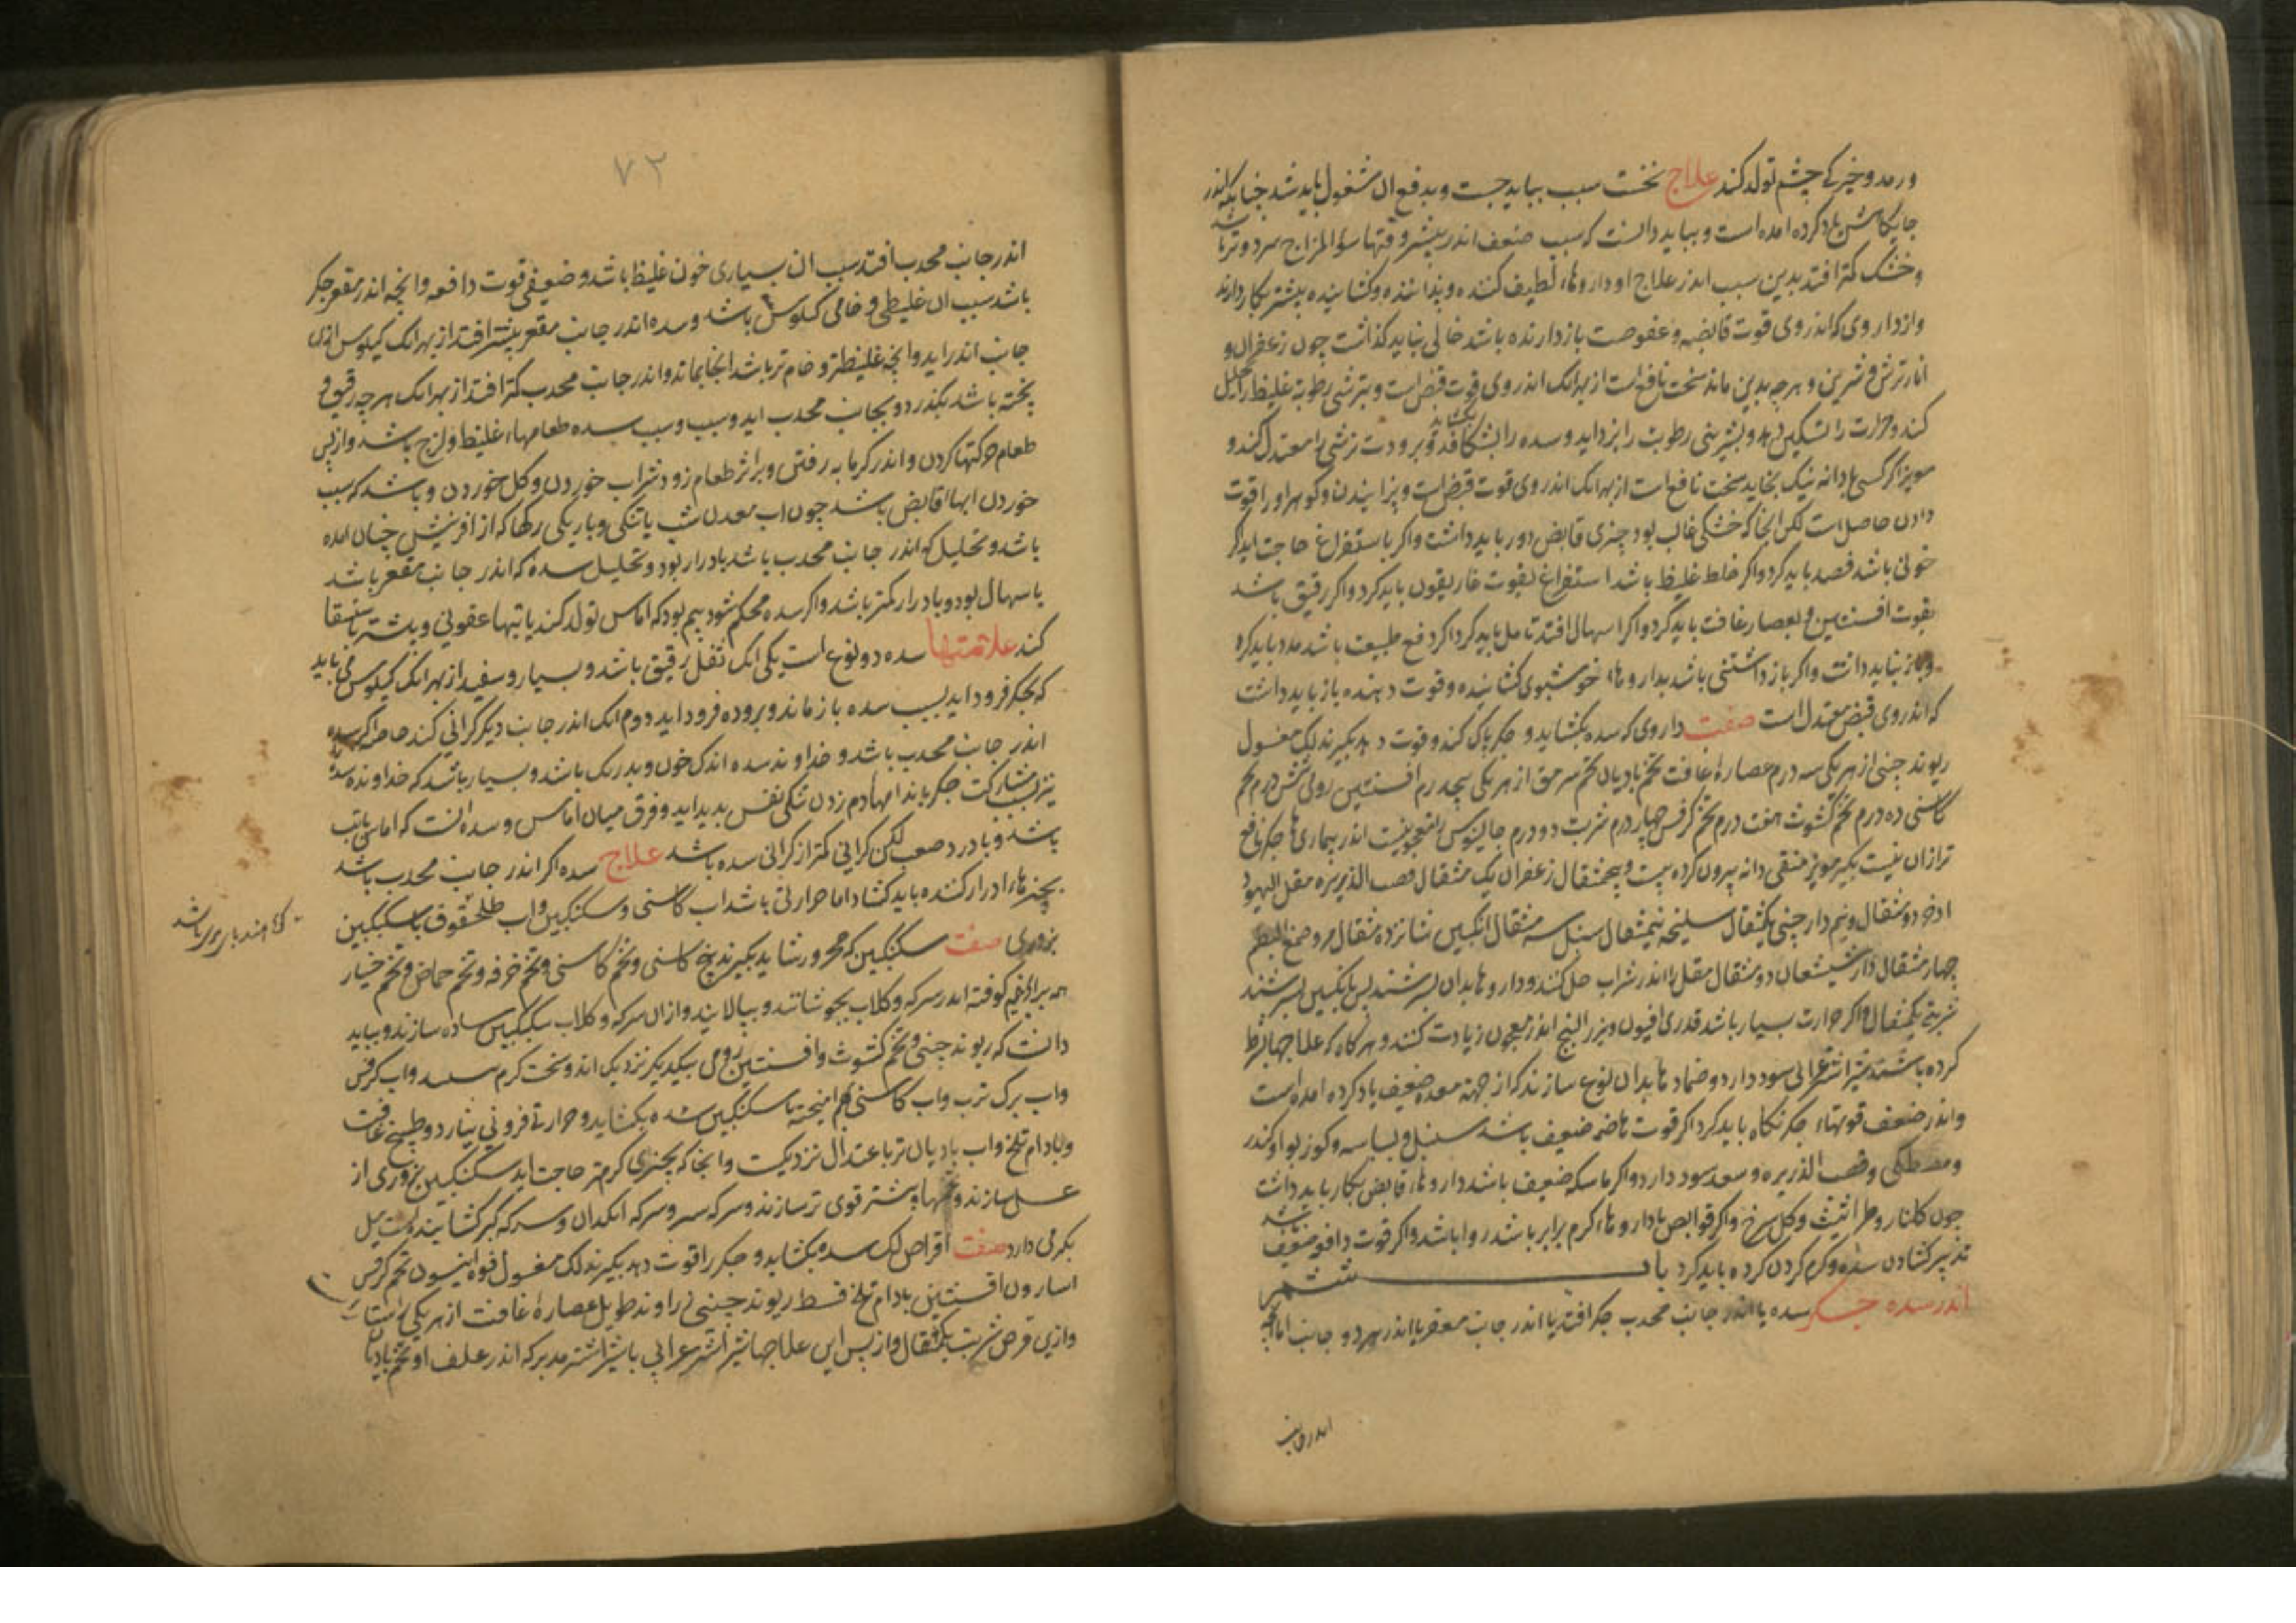 ورمد و خیرکی چشم تولد کند علاج نخست سبب بباید جست و بدفع ان مشغول باید شد چنانکه اندر
جایکاهش یاد کرده امده است و بباید دانست که سبب ضعف اندر بیشتر وقتها سؤ المزاج سرد و تر باشد
و خشک کمتر افتد بدین سبب اندر علاج او داروهاء لطیف کننده و پزاننده و کشاینده بیشتر بکار دارند
و از داروی که اندر وی قوت قابضه و عفوصت بازدارنده باشد خالی نباید کذاشت چون زعفران و
انار ترش و شرین و هرچه بدین ماند سخت نافع است از بهر انک اندر وی قوت قبض است و بترشی رطوبة غلیظ را تحلیل
کند و حرارت را تسکین دهد و بشیرینی رطوبت را بزداید و سده را بشکافد و بکشاید و برودت ترشی را معتدل کند و
مویز اکر کسی با دانه نیک بخاید سخت نافع است از بهر انک اندر وی قوت قبض است و پزانیدن و کوهر او را قوت
دادن حاصل است لکن انجا که خشکی غالب بود چیزی قابض دور باید داشت و اکر باستفراغ حاجت اید اکر
خونی باشد فصد باید کرد و اکر خلط غلیظ باشد استفراغ بقوت غاریقون باید کرد و اکر رقیق باشد
بقوت افسنتین و بعصاره غافت باید کرد و اکر اسهال افتد تامل باید کرد اکر دفع طبیعت باشد مدد باید کرد
و باز نباید داشت و اکر باز داشتنی باشد بداروهاء خوشبوی کشاینده و قوت دهنده باز باید داشت
که اندر وی قبض معتدل است صفت داروی که سده بکشاید و جکر پاک کند و قوت دهد بکیرند لک مغسول
ریوند چینی از هر یکی سه درم عصارۀ غافت تخم بادیان تخم سرمق از هر یکی پنجدرم افسنتین رومی شش درم تخم
کاسنی ده درم تخم کشوث هفت درم تخم کرفس چهار درم شربت دو درم جالینوس را معجونیست اندر بیماریها جکر نافع
تر ازان نیست بکیرند مویز منقی دانه بیرون کرده بیست و پنج مثقال زعفران یک مثقال قصب الذریره مقل الیهود
اذخر دو مثقال و نیم دارچینی یکمثقال سلیخه نیمثقال سنبل سه مثقال انکبین شانزده مثقال مر و صمغ البطم
چهار مثقال دارشیشعان دو مثقال مقل را اندر شراب حل کنند و داروها بدان بسرشند پس بانکبین بسرشند
شربتی یکمثقال و اکر حرارت بسیار باشد قدری افیون و بزر البنج اندر معجون زیادت کنند و هرکاه که علاجها بشرط
کرده باشند شیر اشتر اعرابی سود دارد و ضمادها بدان نوع سازند که از جهة معده ضعیف یاد کرده امده است
و اندر ضعف قوتهاء جکر نکاه باید کرد اکر قوت هاضمه ضعیف باشد سنبل و بسباسه و کوزبوا و کندر
و مصطکی و قصب الذریره و سعد سود دارد و اکر ماسکه ضعیف باشد داروهاء قابض بکار باید داشت
چون کلنار و طراثیث و کل سرخ و اکر قوابض با داروهاء کرم برابر باشد روا باشد و اکر قوت دافعه ضعیف باشد
تدبیر کشادن سده و کرم کردن کرده باید کرد باب ششم
اندر سده جکر سده یا اندر جانب محدب جکر افتد یا اندر جانب مقعر یا اندر هر دو جانب اما انچه
اندر جانب
۷۲
اندر جانب محدب افتد سبب ان بسیاری خون غلیظ باشد و ضعیفی قوت دافعه و انچه اندر مقعر جکر
باشد سبب ان غلیظی و خامی کیلوس باشد و سده اندر جانب مقعر بیشتر افتد از بهر انک کیلوس ازین
جانب اندر اید و انچه غلیظتر و خام تر باشد انجا بماند و اندر جانب محدب کمتر افتد از بهر انک هرچه رقیق و
پخته باشد بکذرد و بجانب محدب اید و سبب سده طعامهاء غلیظ و لزج باشد و از پس
طعام حرکتها کردن و اندر کرمابه رفتن و بر اثر طعام زود شراب خوردن و کل خوردن و باشد که سبب
خوردن ابهاء قابض باشد چون اب معدن شب یا تنکی و باریکی رکها که از افرینش چنان امده
باشد و تحلیل که اندر جانب محدب باشد بادرار بود و تحلیل سده که اندر جانب مقعر باشد
باسهال بود و بادرار کمتر باشد و اکر سده محکم شود بیم بود که اماس تولد کند یا تبها عفونی و بیشتر باستسقا
کند علامتها سده دو نوع است یکی انک ثفل رقیق باشد و بسیار و سفید از بهر انک کیلوس می باید
که بجکر فرود اید بسبب سده باز ماند و بروده فرود اید دوم انک اندر جانب دیکر کرانی کند خاصه اکر سده
اندر جانب محدب باشد و خداوند سده اندک خون و بدرنک باشد و بسیار باشد که خداوند سده
نیز بمشارکت جکر با اندامها دم زدن تنکی نفس پدید اید و فرق میان اماس و سده انست که اماس با تب
باشد و با درد صعب لکن کرانی کمتر از کرانی سده باشد علاج سده اکر اندر جانب محدب باشد
بچیزهاء ادرار کننده باید کشاد اما حرارتی باشد اب کاسنی و سکنکبین و اب طلخشقوق با سکنکبین
بزوری صفت سکنکبین که محرور را شاید بکیرند بیخ کاسنی و تخم کاسنی و تخم خرفه و تخم حماض و تخم خیار
همه برابر نیم کوفته اندر سرکه و کلاب بجوشانند و بپالایند و ازان سرکه و کلاب سکنکبین ساده سازند و بباید
دانست که ریوند چینی و تخم کشوث و افسنتین رومی بیکدیکر نزدیک اند و سخت کرم و اب کرفس
و اب برک ترب و اب کاسنی بهم امیخته با سکنکبین سده بکشاید و حرارتی فزونی نیارد و طبیخ غافت
و بادام تلخ و اب بادیان تر باعتدال نزدیکست و انجا که بچیزی کرم تر حاجت اید سکنکبین بزوری از
عسل سازند و تخمها بیشتر قوی تر سازند و سرکه انکدان و سرکه کبر کشاینده است میل
بکرمی دارد صفت اقراص لک سده بکشاید و جکر را قوت دهد بکیرند لک مغسول فوه انیسون تخم کرفس
اسارون افسنتین بادام تلخ قسط ریوند چینی زراوند طویل عصارۀ غافت از هر یکی راستا راست
و ازین قرص شربت یکمثقال و از پس این علاجها شیر اشتر اعرابی یا شیر اشتر مدبر که اندر علف او تخم بادیان